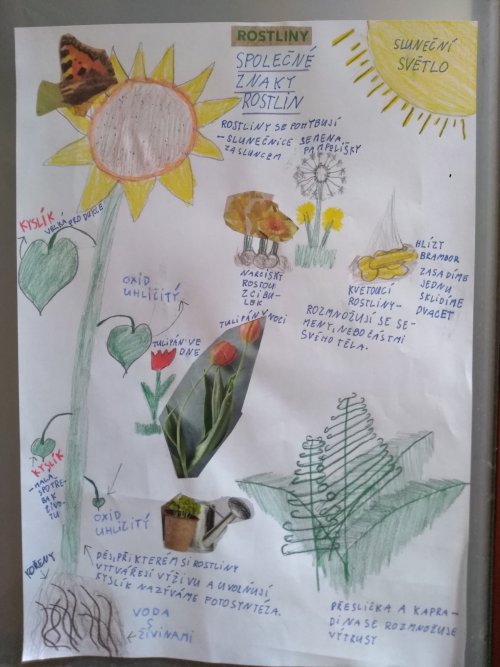 ROSTLINY
SPOLEČNÉ
ZNAKY
ROSTLIN
SLUNEČNÍ
SVĚTLO
ROSTLINY SE POHYBUJÍ
- SLUNEČNICE SEMENA
ZA SLUNCEM PAMPELIŠKY
KYSLÍK
VELKÁ PRODUKCE
OXID
UHLIČITÝ
NARCISKY
ROSTOU
Z CIBU-
LEK
KVETOUCÍ
ROSTLINY-
ROZMNOŽUJÍ SE SE-
MENY, NEBO ČÁSTMI
SVÉHO TĚLA.
HLÍZY
BRAMBOR
ZASADÍME
JEDNU
SKLIDÍME
DVACET
TULIPÁN V NOCI
TULIPÁN VE
DNE
KYSLÍK
- MALÁ
SPOTŘE-
BA K
ŽIVO-
TU
OXID
UHLIČITÝ
KOŘENY
DĚJ, PŘI KTERÉM SI ROSTLINY
VYTVÁŘEJÍ VÝŽIVU A UVOLŇUJÍ
KYSLÍK NAZÝVÁME FOTOSYNTÉZA.
VODA
S
ŽIVINAMI
PŘESLIČKA A KAPRA-
DINA SE ROZMNOŽUJE
VÝTRUSY